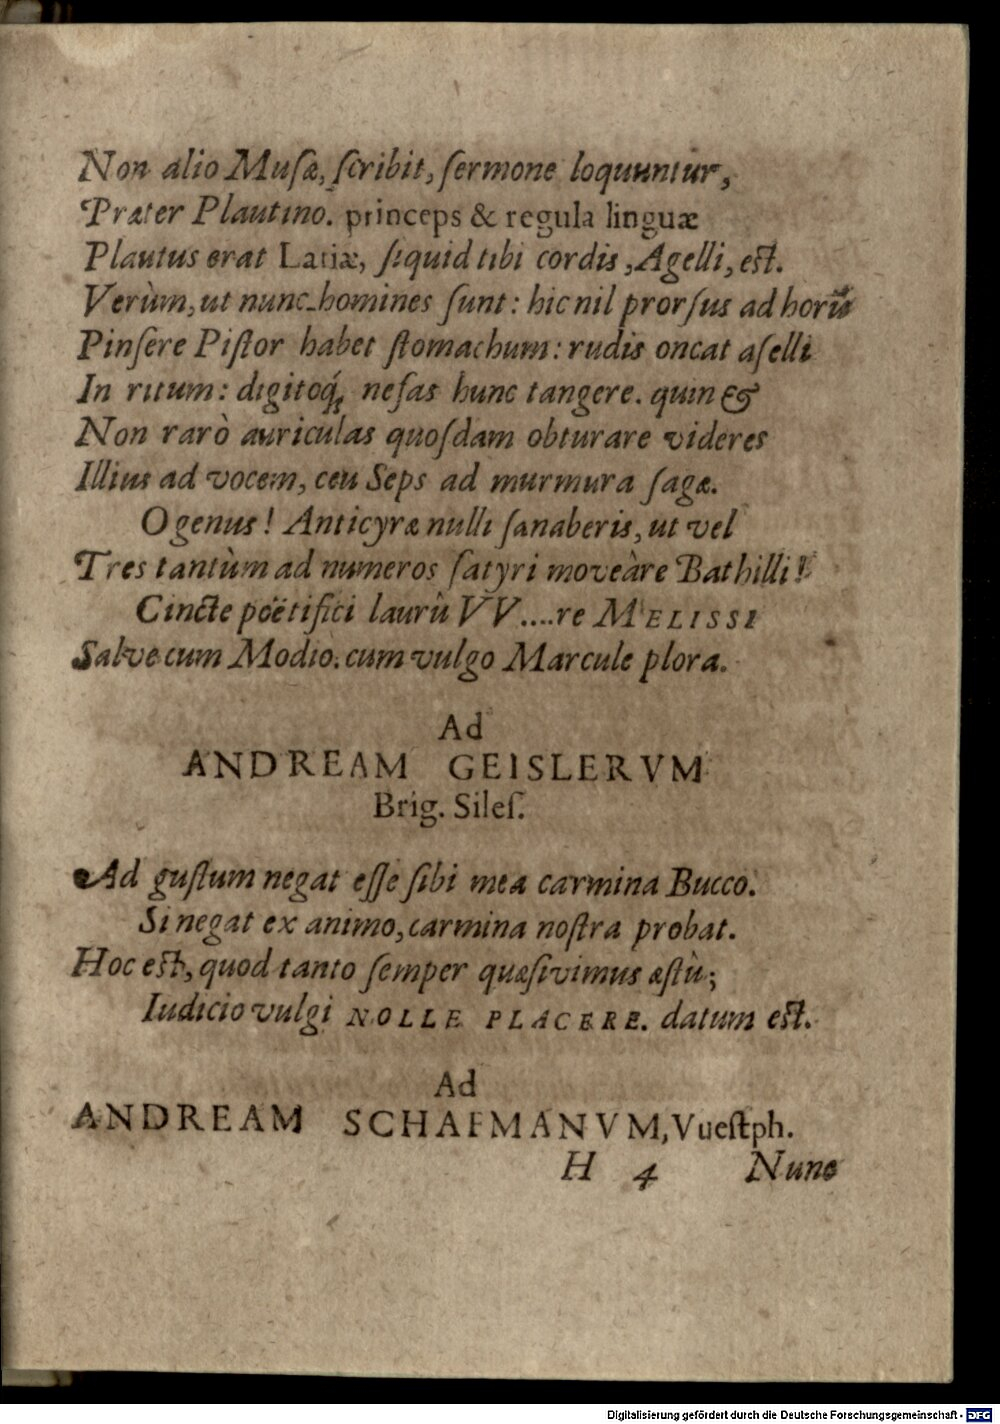 Non alio Muſæ, ſcribit, ſermone loquuntur,
Præter Plautino. princeps & regula linguæ
Plautus erat Latiæ, ſiquid tibi cordis, Agelli, eſt.
Verùm, ut nunc homines ſunt: hic nil prorſus ad horū
Pinſere Piſtor habet ſtomachum: rudis oncat aſelli
In ritum: digitoq́; nefas hunc tangere. quin &
Non rarò auriculas quoſdam obturare videres
Illius ad vocem, ceu Seps ad murmura ſagæ.
O genus! Anticyræ nulli ſanaberis, ut vel
Tres tantùm ad numeros ſatyri moveàre Bathilli!
Cincte poëtifici laurù VV....re MELISSI
Salve cum Modio. cum vulgo Marcule plora.
Ad
ANDREAM GEISLERVM
Brig. Sileſ.
Ad guſtum negat eſſe ſibi mea carmina Bucco.
Si negat ex animo, carmina noſtra probat.
Hoc eſt, quod tanto ſemper quæſivimus æſtù;
Iudicio vulgi NOLLE PLACERE. datum eſt.
Ad
ANDREAM SCHAFMANVM, Vueſtph.
H 4 Nunc
Digitalisierung gefördert durch die Deutsche Forschungsgemeinschaft - DFG